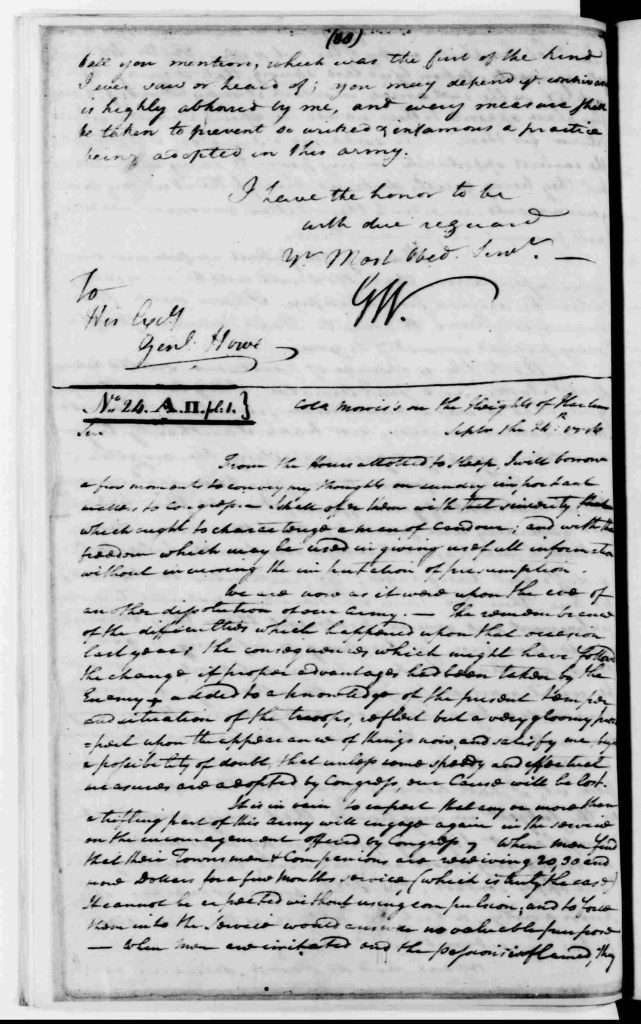 (88)
ball you mention, which was the first of the kind
I ever saw or heard of; you may depend ye contrivance
is highly abhored by me, and every measure shall
be taken to prevent so wicked & infamous a practice
being adopted in this army.
I have the honor to be
with due reguard
Yr. Most Obed. Servt.
GW.
To
His Excy
Genl. Howe
No. 24. A.II. pt. 1.}
Colo Morris's on the Heights of Harlem
Sir
Septr the 24th 1776
From the Hours allotted to sleep, I will borrow
a few moments to convey my thoughts on sundry important
matters to Congress. I shall offer them with that sincerity
which ought to characterize a man of candour; and with the
freedom which may be used in giving usefull information
without incurring the imputation of presumption.
We are now as it were upon the eve of
another dissolution of our Army. — The remembrance
of the difficulties which happened upon that occasion
last year; the consequences which might have followed
the change if proper advantages had been taken by the
Enemy; added to a knowledge of the present temper
and situation of the troops, reflect but a very gloomy pros
=pect upon the appearance of things now, and satisfy me, beyond
a possibility of doubt that unless some speedy and effectual
measures are adopted by Congress, our Cause will be lost.
It is in vain to expect that any or more than
a trifling part of this army will engage again in the service
on the incouragement offered by Congress; When men find
that their Townsmen & Companions are receiving 20, 30 and
more Dollars for a few Months service (which is truly the case)
It cannot be expected without using compulsion; and to force
them into the Service would answer no valuable purpose
— When men are irritated and the passions inflamed, they